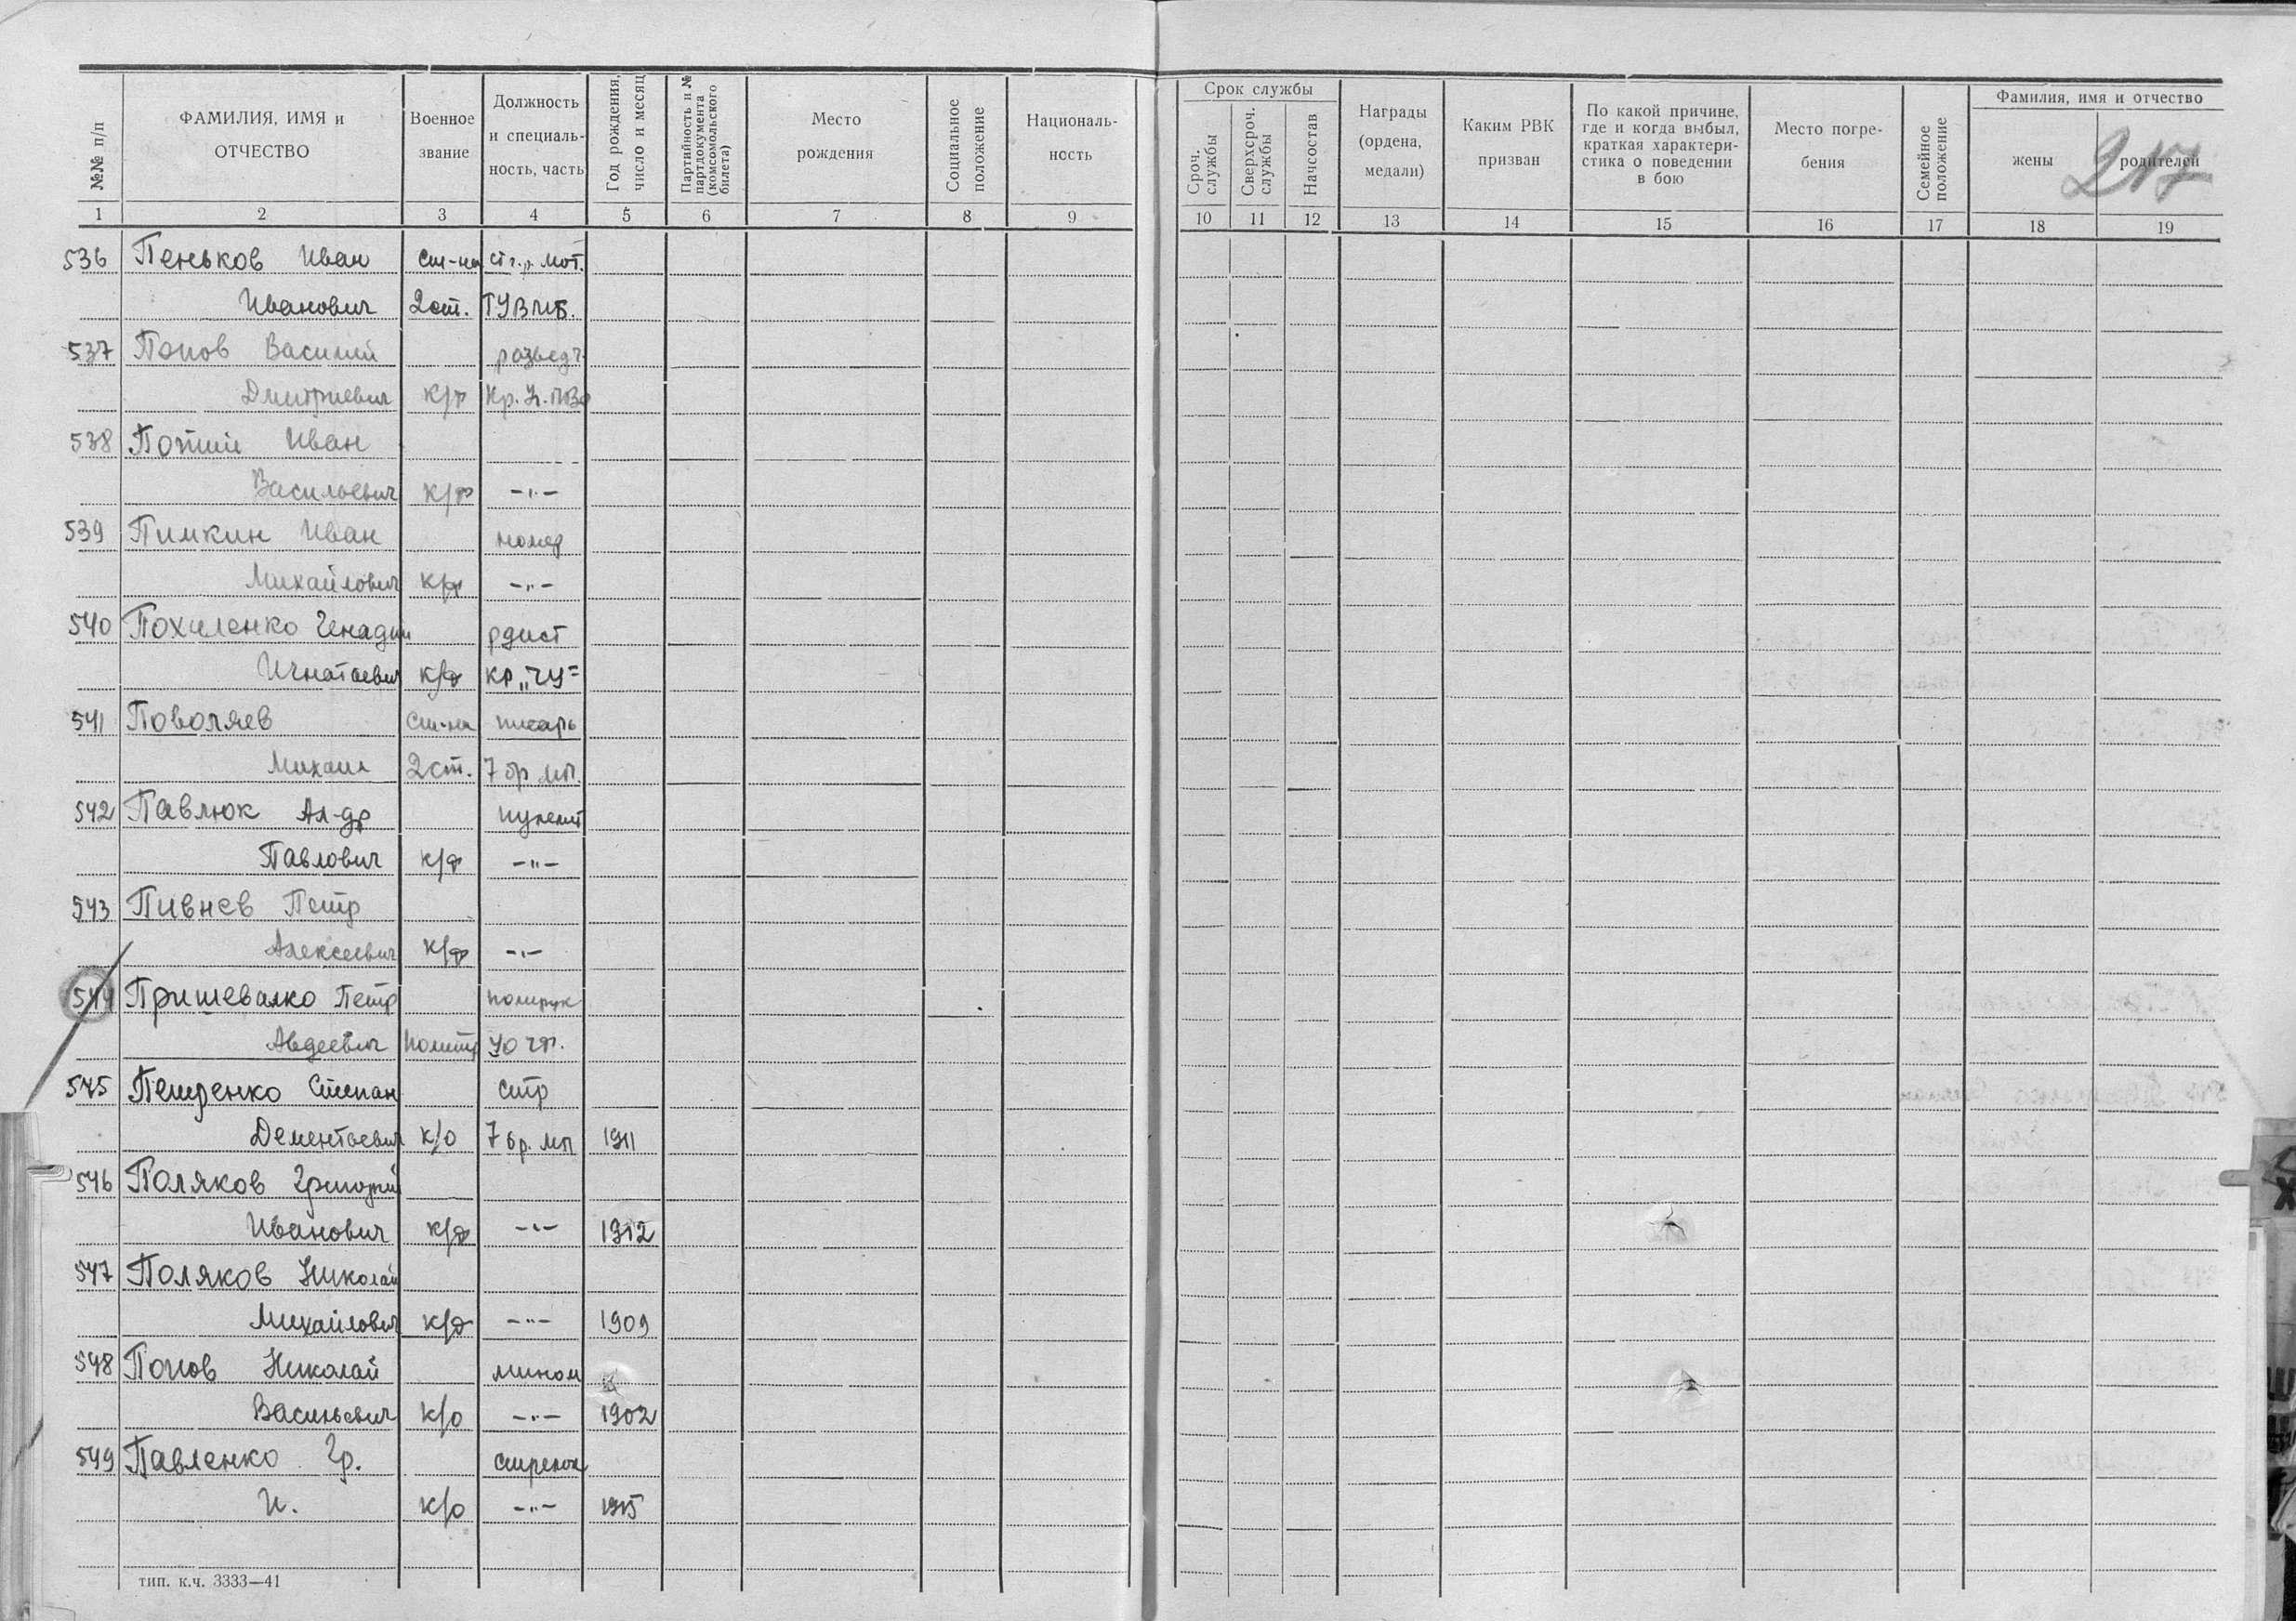 №№ п/п
ФАМИЛИЯ, ИМЯ и ОТЧЕСТВО
Военное звание
Должность и специаль-ность, часть
Год рождения, число и месяц
Партийность и № партдокумента (комсомольского билета)
Место рождения
Социальное положение
Националь-ность
Срок службы
Сроч. службы
Сверхсроч. службы
Начсостав
Награды (ордена, медали)
Каким РВК призван
По какой причине, где и когда выбыл, краткая характери-стика о поведении в бою
Место погре-бения
Семейное положение
Фамилия, имя и отчество
жены
родителей
217
1 2 3 4 5 6 7 8 9 10 11 12 13 14 15 16 17 18 19
536 Пеньков Иван ст-на мот.
Иванович 2 ст. ТУВМБ.
537 Попов Василий разведч
Дмитриевич к/ф
538 Потий Иван
Васильевич к/ф -"-
539 Пимкин Иван номер
Михайлович к/ф -"-
540 Похиленко Генадий рдист
Игнатьевич к/ф кр „ЧУ"
541 Поволяев ст-на писарь
Михаил 2 ст. 7 бр. мп.
542 Павлюк Ал-др пулемт
Павлович к/ф -"-
543 Пивнев Петр
Алексеевич к/ф -"-
544 Пришевалко Петр
Авдеевич политр
545 Петренко Степан стр
Дементьевич к/о 7 бр. мп 1911
546 Поляков Григорий
Иванович к/ф -"- 1912
547 Поляков Николай
Михайлович к/ф -"- 1909
548 Попов Николай мином
Васильевич к/о -"- 1902
549 Павленко Гр.
И. к/о -"- 1915
тип. к.ч. 3333—41